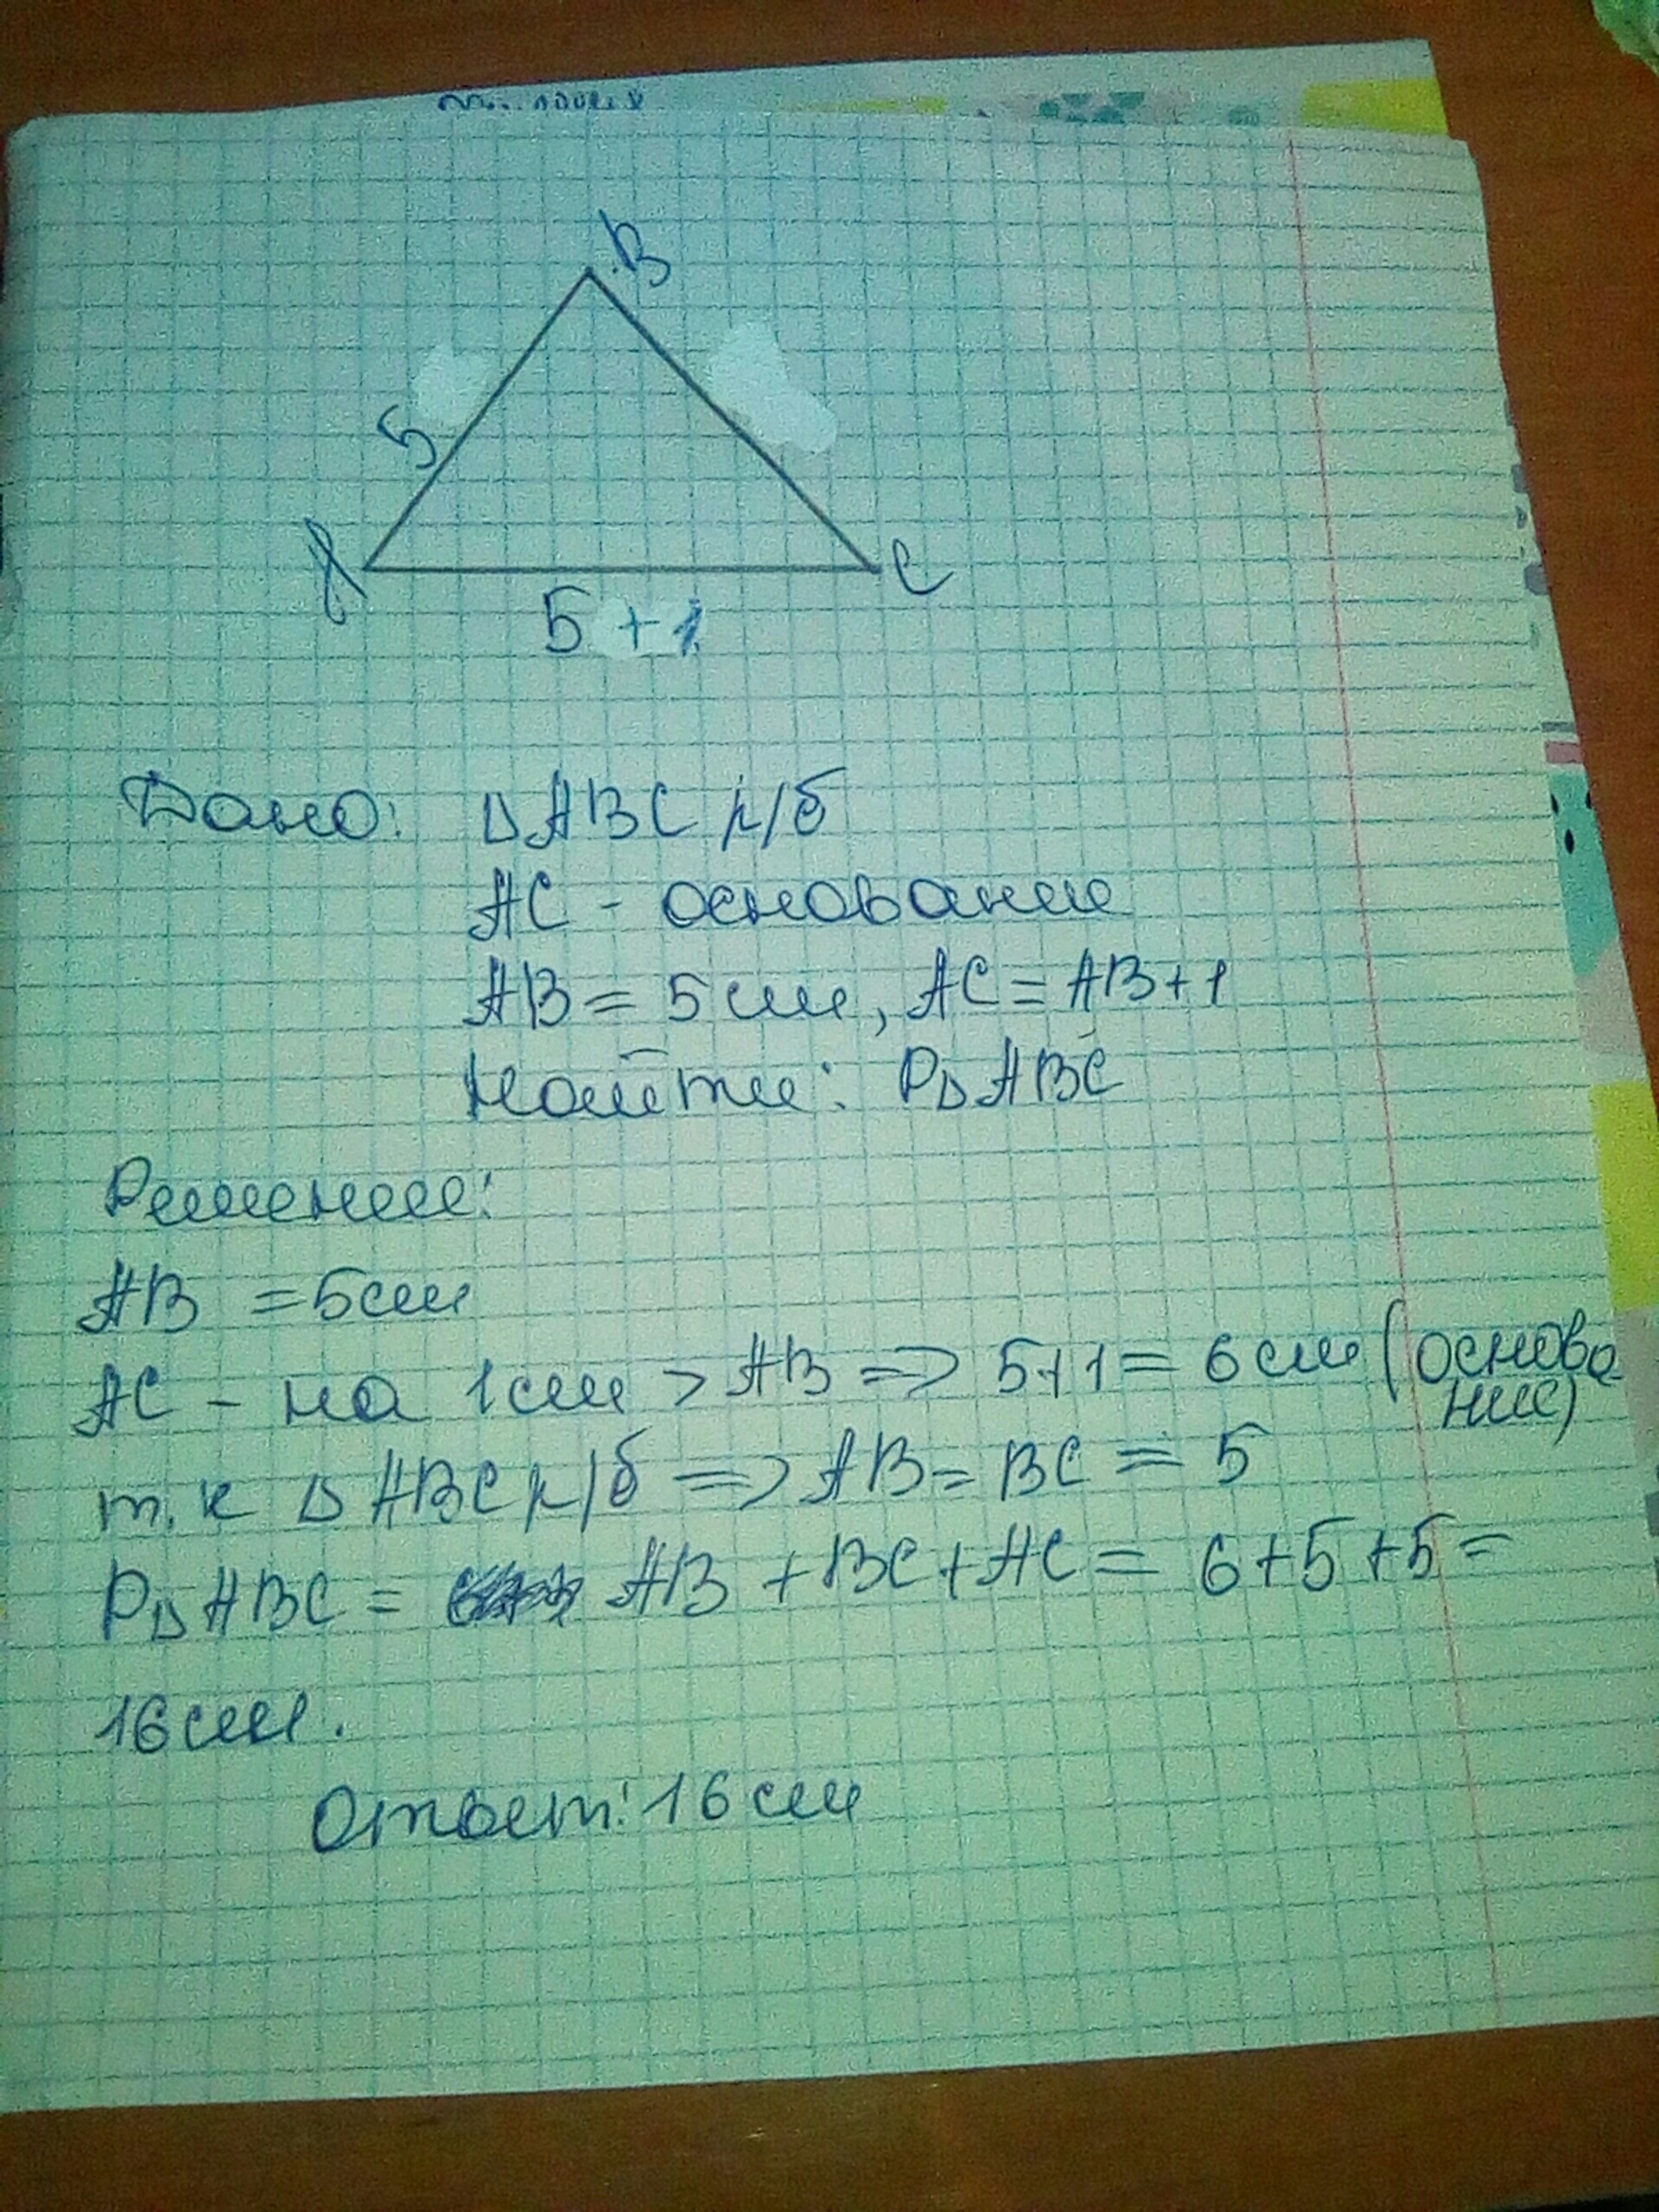 B
5
A
C
5 + 1
Дано: ΔABC р/б
AC - основание
AB = 5 см, AC = AB + 1
Найти: PΔABC
Решение:
AB = 5 см
AC - на 1 см > AB => 5+1 = 6 см (основа
ние)
т.к ΔABC р/б => AB = BC = 5
PΔABC = AB + BC + AC = 6 + 5 + 5 =
16 см.
Ответ: 16 см